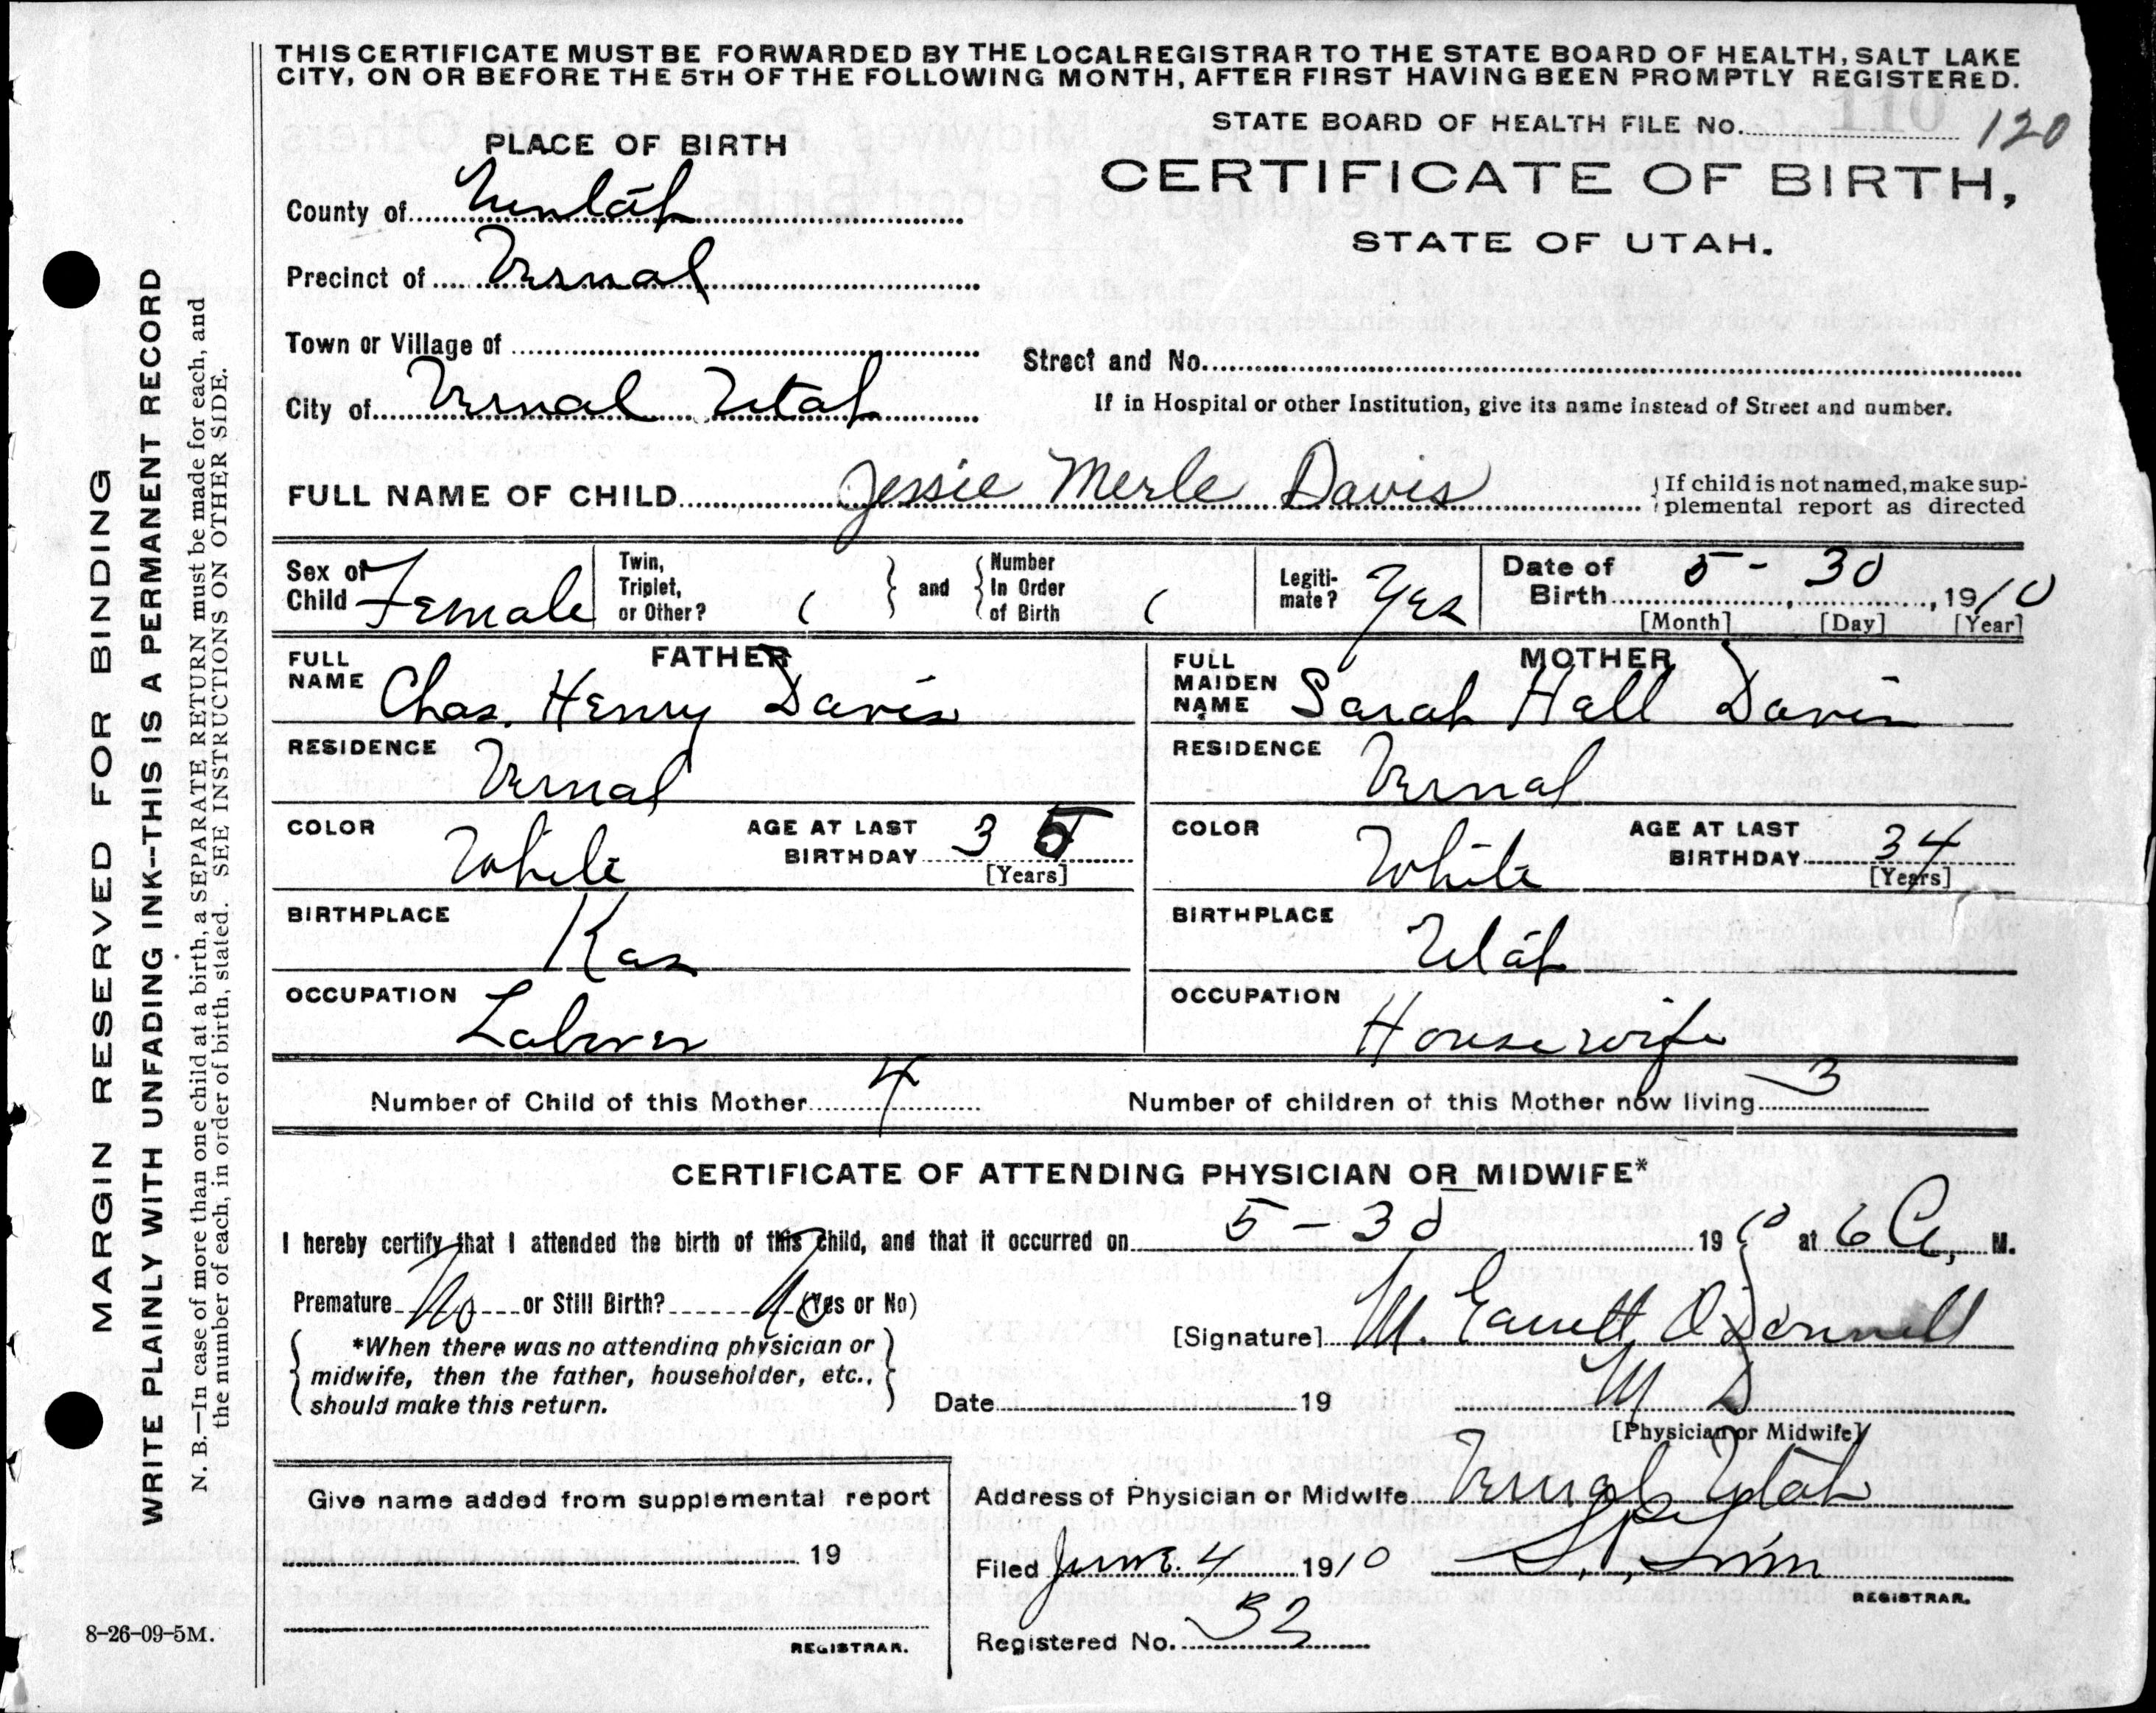 THIS CERTIFICATE MUST BE FORWARDED BY THE LOCAL REGISTRAR TO THE STATE BOARD OF HEALTH, SALT LAKE
CITY, ON OR BEFORE THE 5TH OF THE FOLLOWING MONTH, AFTER FIRST HAVING BEEN PROMPTLY REGISTERED.
STATE BOARD OF HEALTH FILE No. 110 120
CERTIFICATE OF BIRTH,
STATE OF UTAH.
PLACE OF BIRTH
County of Uintah
Precinct of Vernal
Town or Village of
Street and No.
City of Vernal Utah
If in Hospital or other Institution, give its name instead of Street and number.
FULL NAME OF CHILD Jessie Merle Davis
If child is not named, make sup-
plemental report as directed
Sex of Child Female
Twin, Triplet, or Other? ( and Number In Order of Birth (
Legiti-mate? Yes
Date of Birth 5 - 30, 1910
[Month] [Day] [Year]
FATHER
FULL NAME Chas. Henry Davis
RESIDENCE Vernal
COLOR White
AGE AT LAST BIRTHDAY 35
[Years]
BIRTHPLACE Kas
OCCUPATION Laborer
MOTHER
FULL MAIDEN NAME Sarah Hall Davis
RESIDENCE Vernal
COLOR White
AGE AT LAST BIRTHDAY 34
[Years]
BIRTHPLACE Utah
OCCUPATION Housewife
Number of Child of this Mother 4
Number of children of this Mother now living 3
CERTIFICATE OF ATTENDING PHYSICIAN OR MIDWIFE*
I hereby certify that I attended the birth of this child, and that it occurred on 5 - 30 1910 at 6 A. M.
Premature No or Still Birth? No (Yes or No)
*When there was no attending physician or
midwife, then the father, householder, etc.,
should make this return.
[Signature] M. Garrett O'Donnell
Date 19
M D
[Physician or Midwife]
Give name added from supplemental report
19
REGISTRAR.
Address of Physician or Midwife Vernal Utah
Filed June 4 1910
REGISTRAR.
Registered No. 32
8-26-09-5M.
MARGIN RESERVED FOR BINDING
WRITE PLAINLY WITH UNFADING INK--THIS IS A PERMANENT RECORD
N. B.—In case of more than one child at a birth, a SEPARATE RETURN must be made for each, and
the number of each, in order of birth, stated. SEE INSTRUCTIONS ON OTHER SIDE.